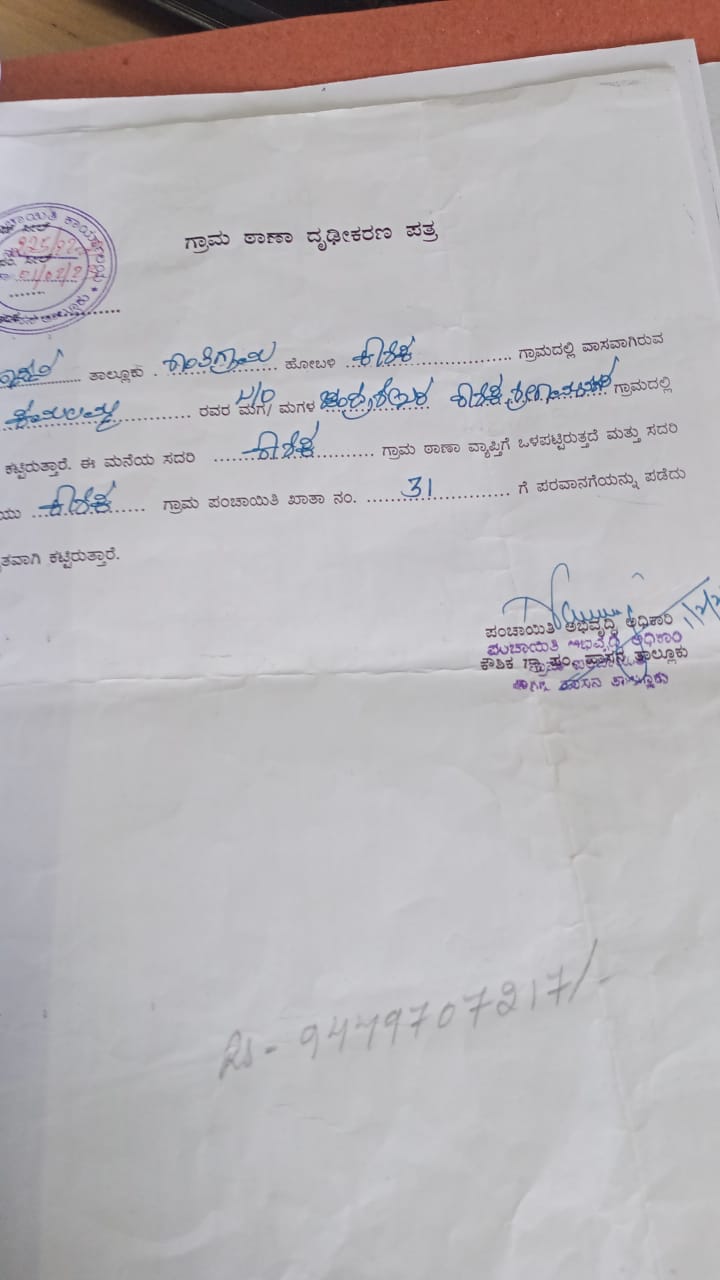 ಗ್ರಾಮ ಠಾಣಾ ದೃಢೀಕರಣ ಪತ್ರ
ತಾಲ್ಲೂಕು . ಶಾಂತಿಗ್ರಾಮ ಹೋಬಳಿ ಕೌಶಿಕ ಗ್ರಾಮದಲ್ಲಿ ವಾಸವಾಗಿರುವ
ಕಮಲಮ್ಮ ರವರ ಮಗ/ ಮಗಳ W/O ಚಂದ್ರಶೇಖರ ಕೌಶಿಕ ಗ್ರಾಮದಲ್ಲಿ
ಕಟ್ಟಿರುತ್ತಾರೆ. ಈ ಮನೆಯ ಸದರಿ ಕೌಶಿಕ ಗ್ರಾಮ ಠಾಣಾ ವ್ಯಾಪ್ತಿಗೆ ಒಳಪಟ್ಟಿರುತ್ತದೆ ಮತ್ತು ಸದರಿ
ಯು ಕೌಶಿಕ ಗ್ರಾಮ ಪಂಚಾಯಿತಿ ಖಾತಾ ನಂ. 31 ಗೆ ಪರವಾನಗೆಯನ್ನು ಪಡೆದು
ತವಾಗಿ ಕಟ್ಟಿರುತ್ತಾರೆ.
ಪಂಚಾಯಿತಿ ಅಭಿವೃದ್ಧಿ ಅಧಿಕಾರಿ
ಪಂಚಾಯಿತಿ ಅಭಿವೃದ್ಧಿ ಅಧಿಕಾರಿ
ಕೌಶಿಕ ಗ್ರಾ. ಪಂ. ಹಾಸನ ತಾಲ್ಲೂಕು
ಹಾಸನ ತಾಲ್ಲೂಕು
9449707217/-